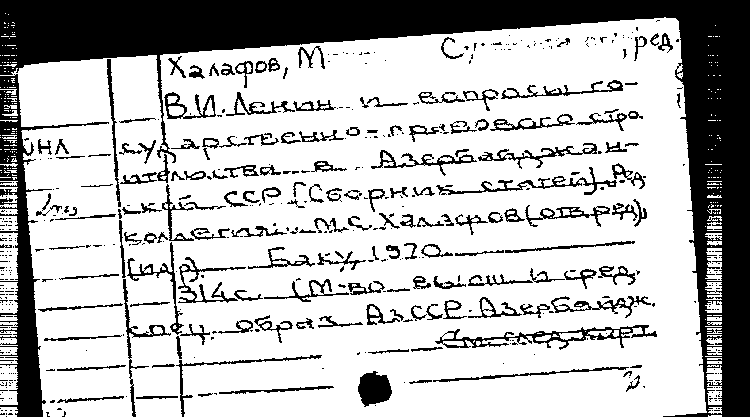 Халафов, М ред.
В.И. Ленин и вопросы го-
сударственно-правового стро-
ительства в Азербайджан-
ской ССР. [Сборник статей]. Ред.
коллегия: М.С. Халафов (отв. ред.)
(и др). Баку, 1970.
314 с. (М-во высш и сред.
спец. образ АзССР. Азербайдж.
См. след. карт.